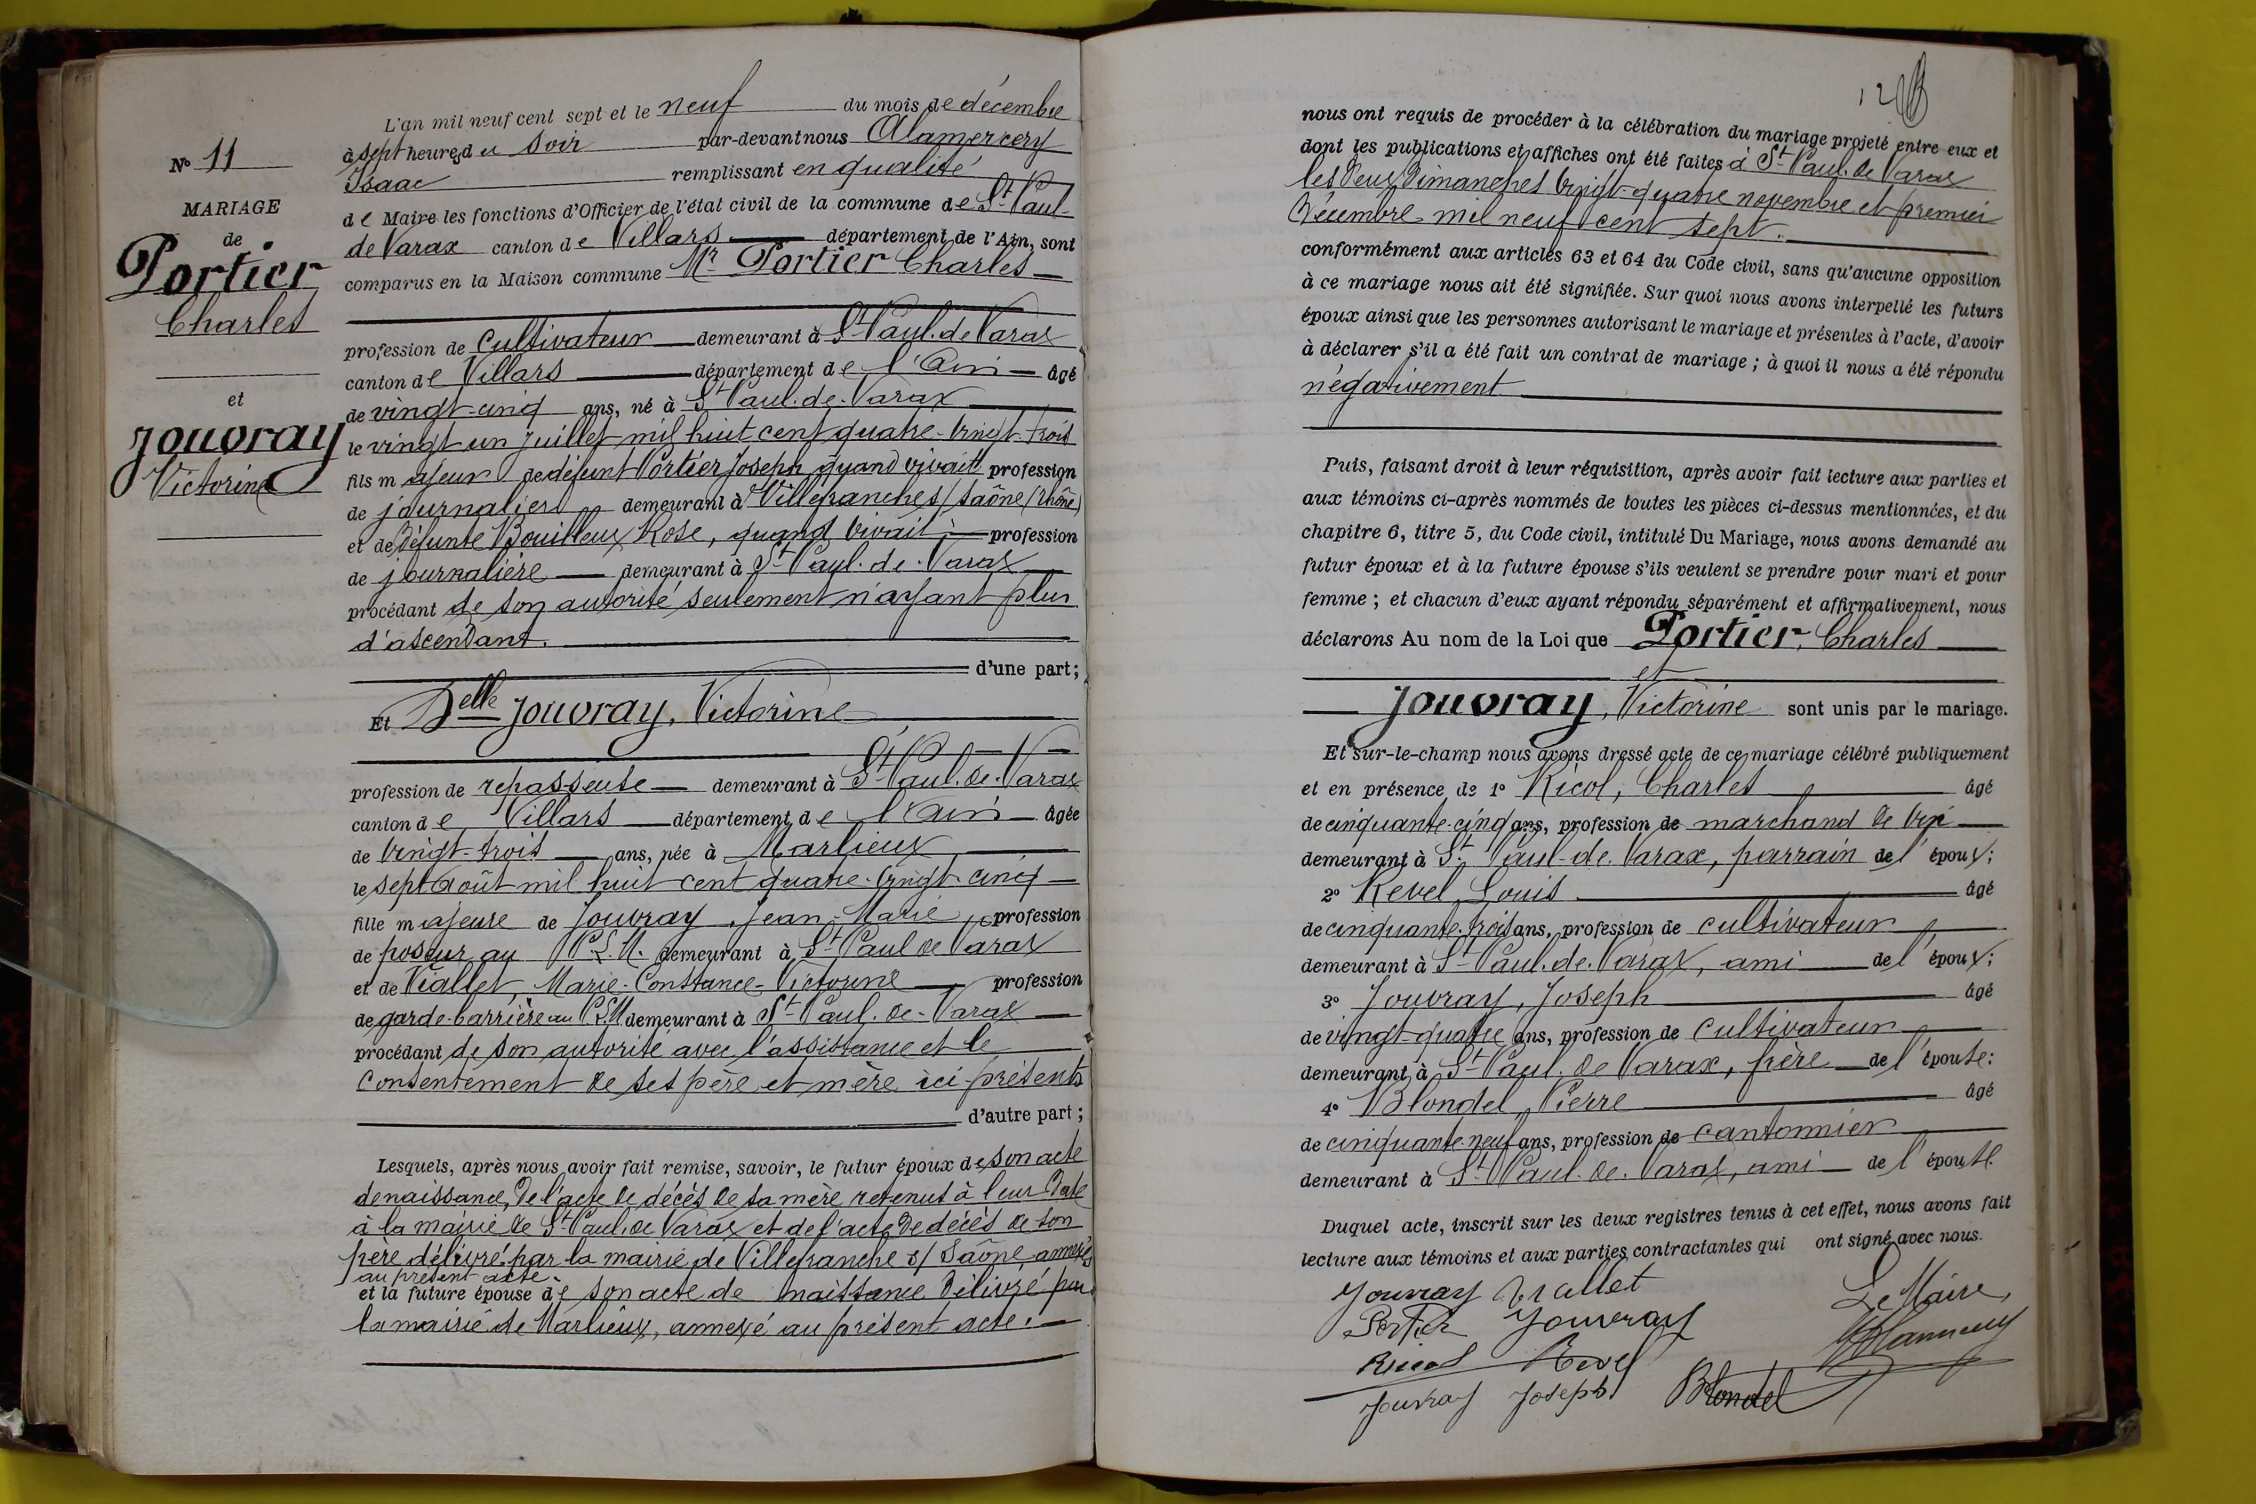 N° 11
MARIAGE
de
Portier
Charles
et
Jouvray
Victorine
L'an mil neuf cent sept et le neuf du mois de décembre
à sept heures du soir par-devant nous Alamercery
Isaac remplissant en qualité
de Maire les fonctions d'Officier de l'état civil de la commune de St Paul-
de Varax canton de Villars département de l'Ain, sont
comparus en la Maison commune Mr Portier Charles
profession de cultivateur demeurant à St Paul.de Varax
canton de Villars département de l'Ain âgé
de vingt-cinq ans, né à St Paul.de.Varax
le vingt un juillet mil huit cent quatre-vingt-trois
fils majeur de défunt Portier Joseph quand vivait profession
de journalier demeurant à Villefranches/Saône (Rhône)
et de défunte Bouilleux Rose, quand vivait profession
de journalière demeurant à St Paul.de.Varax
procédant de son autorité seulement n'ayant plus
d'ascendant.
d'une part;
Et Delle Jouvray, Victorine
profession de repasseuse demeurant à St Paul.de.Varax
canton de Villars département de l'Ain âgée
de vingt-trois ans, née à Marlieux
le sept août mil huit cent quatre-vingt-cinq
fille majeure de Jouvray, Jean-Marie profession
de poseur au P.L.M. demeurant à St Paul de Varax
et de Viallet, Marie-Constance-Victorine profession
de garde-barrière au P.L.M demeurant à St Paul.de-Varax
procédant de son autorité avec l'assistance et le
consentement de ses père et mère ici présents
d'autre part;
Lesquels, après nous avoir fait remise, savoir, le futur époux de son acte
de naissance, de l'acte de décès de sa mère retenus à leur date
à la mairie de St Paul.de Varax et de l'acte de décès de son
père délivré par la mairie de Villefranche s/ Saône annexés
au présent acte.
et la future épouse de son acte de naissance délivré par
la mairie de Marlieux, annexé au présent acte.
12
nous ont requis de procéder à la célébration du mariage projeté entre eux et
dont les publications et affiches ont été faites à St Paul.de Varax
les deux Dimanches vingt-quatre novembre et premier
Décembre mil neuf cent sept.
conformément aux articles 63 et 64 du Code civil, sans qu'aucune opposition
à ce mariage nous ait été signifiée. Sur quoi nous avons interpellé les futurs
époux ainsi que les personnes autorisant le mariage et présentes à l'acte, d'avoir
à déclarer s'il a été fait un contrat de mariage; à quoi il nous a été répondu
négativement
Puis, faisant droit à leur réquisition, après avoir fait lecture aux parties et
aux témoins ci-après nommés de toutes les pièces ci-dessus mentionnées, et du
chapitre 6, titre 5, du Code civil, intitulé Du Mariage, nous avons demandé au
futur époux et à la future épouse s'ils veulent se prendre pour mari et pour
femme; et chacun d'eux ayant répondu séparément et affirmativement, nous
déclarons Au nom de la Loi que Portier, Charles
et
Jouvray, Victorine sont unis par le mariage.
Et sur-le-champ nous avons dressé acte de ce mariage célébré publiquement
et en présence de 1° Ricol, Charles âgé
de cinquante-cinq ans, profession de marchand de vin
demeurant à St Paul-de.Varax, parrain de l'époux;
2° Revel Louis âgé
de cinquante-trois ans, profession de cultivateur
demeurant à St Paul.de.Varax, ami de l'époux;
3° Jouvray, Joseph âgé
de vingt-quatre ans, profession de cultivateur
demeurant à St Paul.de Varax, frère de l'épouse:
4° Blondel, Pierre âgé
de cinquante-neuf ans, profession de cantonnier
demeurant à St Paul.de.Varax, ami de l'épouse.
Duquel acte, inscrit sur les deux registres tenus à cet effet, nous avons fait
lecture aux témoins et aux parties contractantes qui ont signé avec nous.
Jouvray Viallet
Le Maire,
Portier Jouvray
Alamercery
Ricol Revel
Jouvray Joseph Blondel